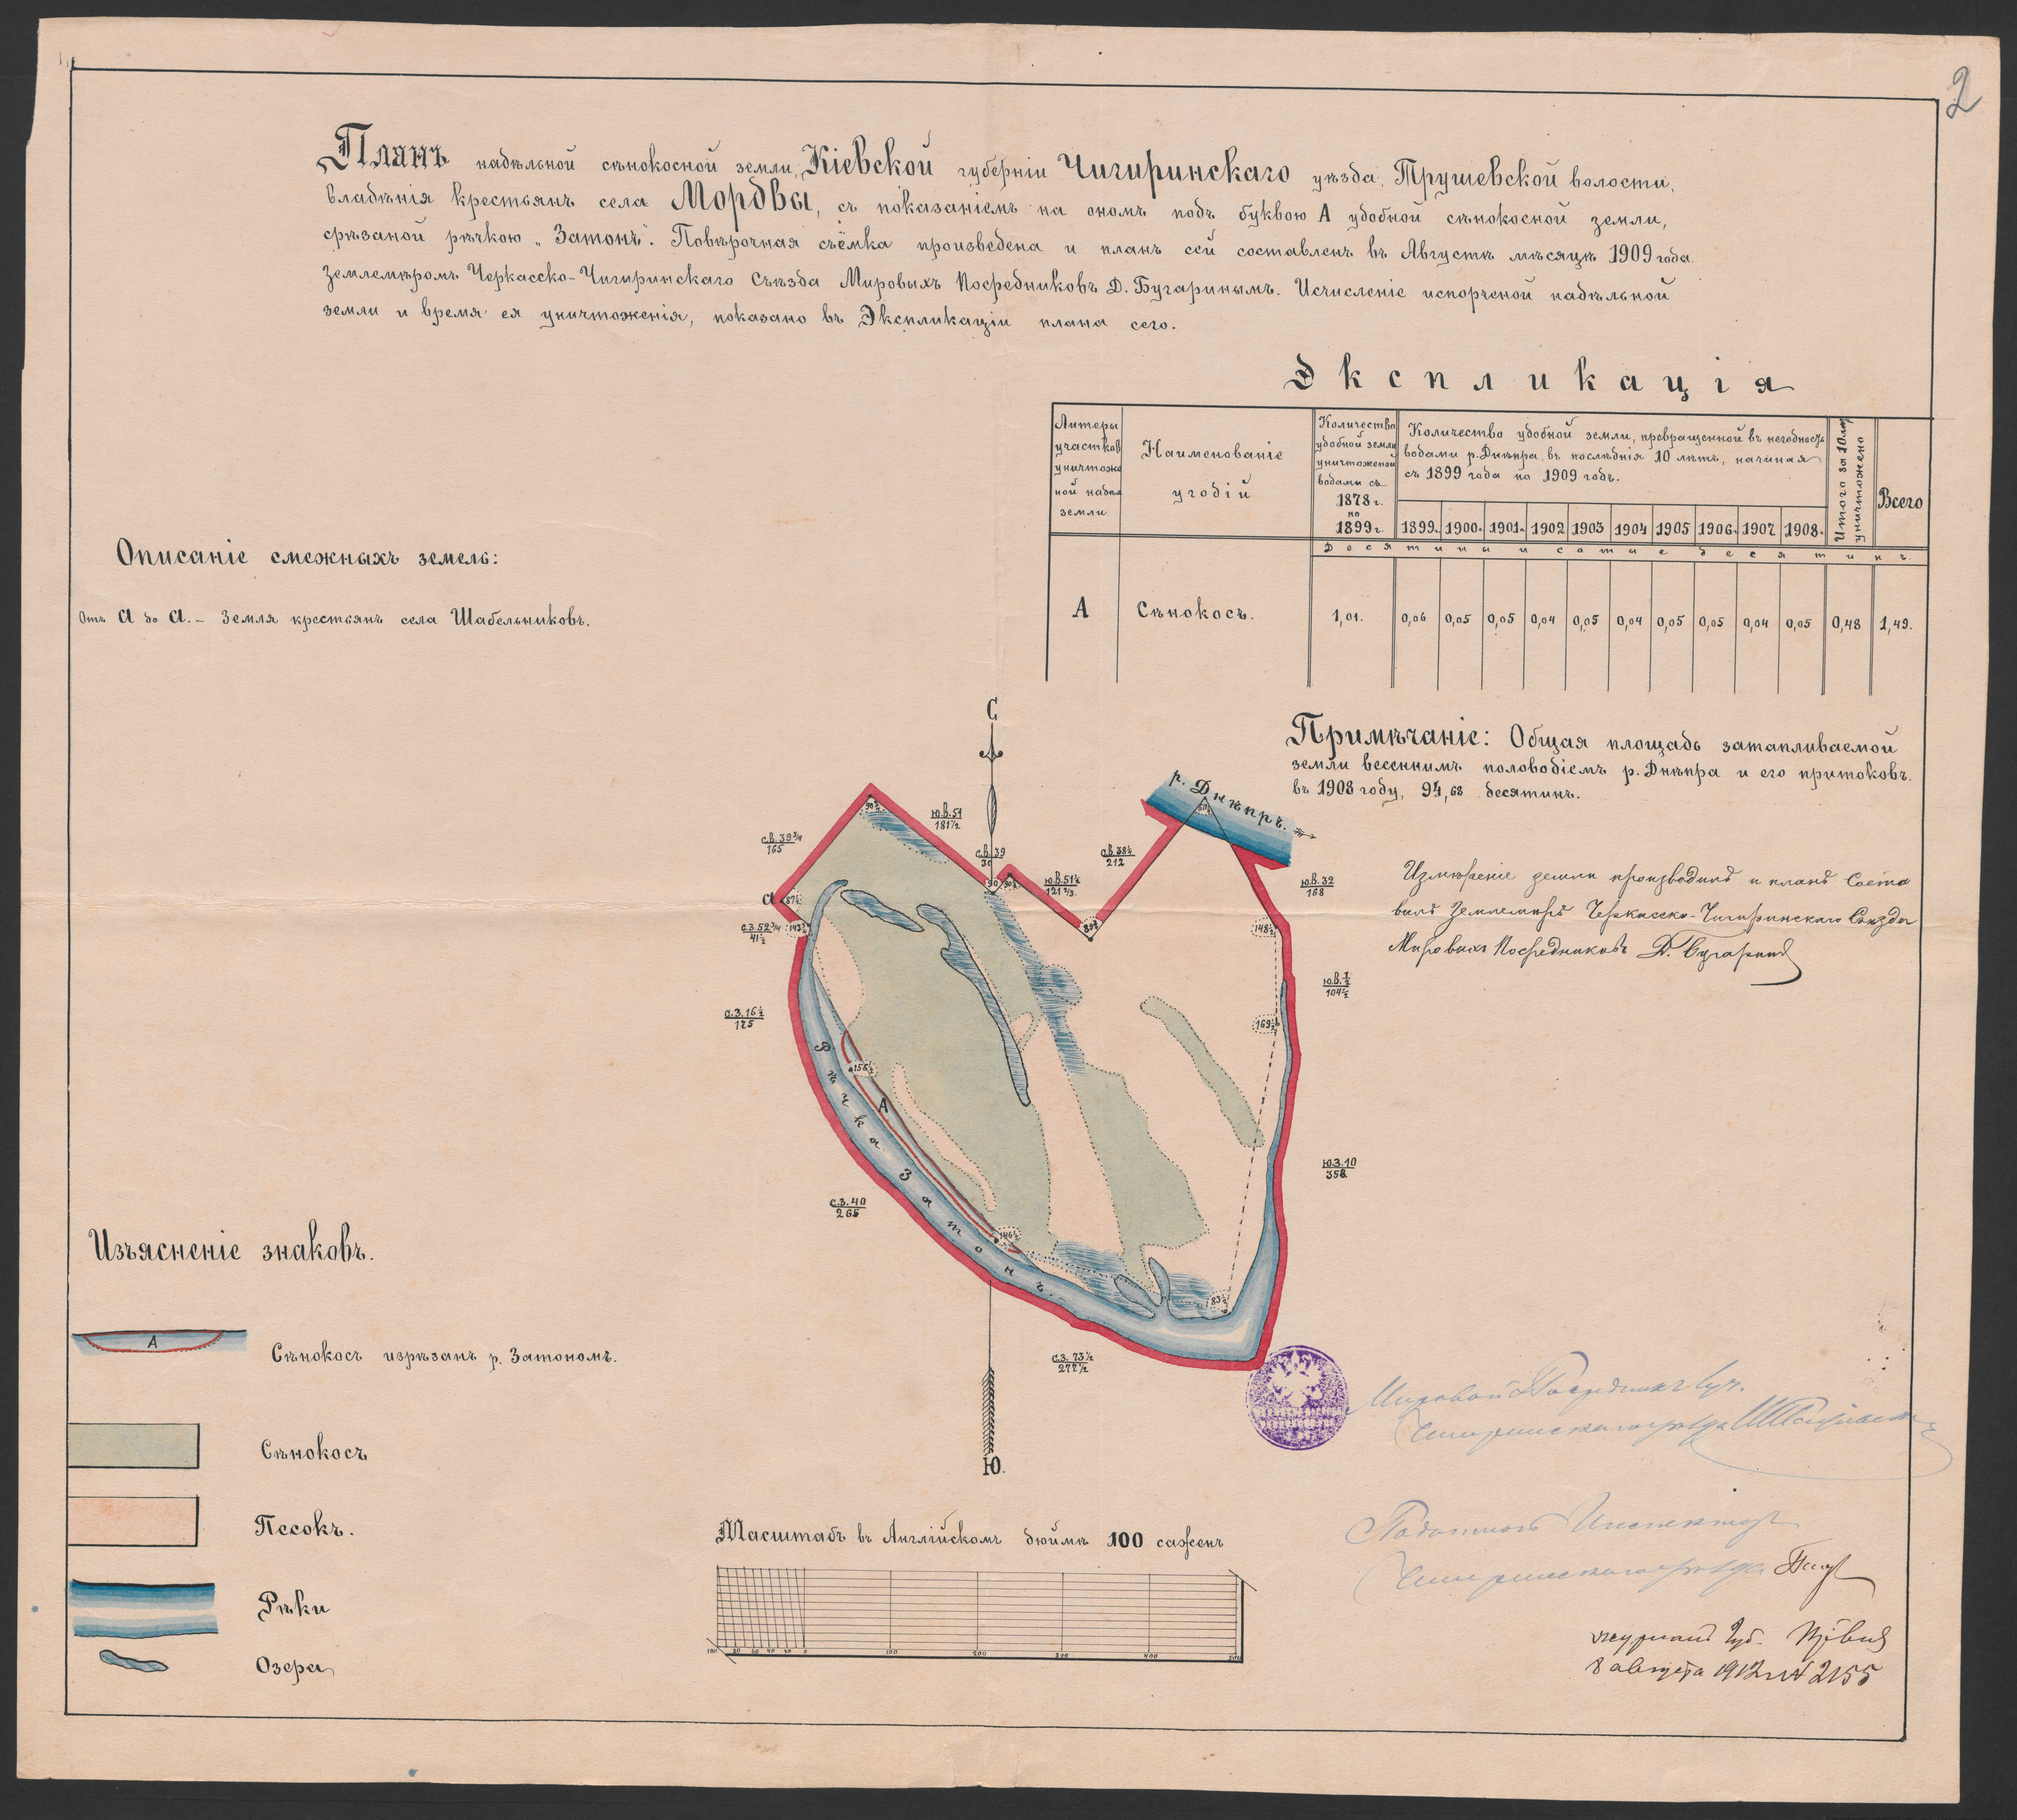 2
Планъ надѣльной сѣнокосной земли, Кіевской губерніи Чигиринскаго уѣзда, Трушевской волости,
владѣнія крестьянъ села Мордвы, съ показаніемъ на ономъ подъ буквою А удобной сѣнокосной земли,
срѣзаной рѣчкою „Затонъ". Повѣрочная съёмка произведена и планъ сей составленъ въ Августѣ мѣсяцѣ 1909 года.
Землемѣромъ Черкасско-Чигиринскаго Съѣзда Мировыхъ Посредниковъ Д. Бугаринымъ. Исчисленіе испорченой надѣльной
земли и время ея уничтоженія, показано въ Экспликаціи плана сего.
Экспликація
Литеры
участков
уничтоже
ной надѣл
земли
Наименованіе
угодій
Количество
удобной земли
уничтоженой
водами съ
1878 г.
по
1899 г.
Количество удобной земли, превращенной въ негодность
водами р. Днѣпра, въ послѣднія 10 лѣтъ, начиная
съ 1899 года по 1909 годъ.
1899. 1900. 1901. 1902 1903 1904 1905 1906. 1907 1908.
Итого за 10 лѣт
уничтожено
Всего
Десятины и сотые десятинъ.
А Сѣнокосъ. 1,01. 0,06 0,05 0,05 0,04 0,05 0,04 0,05 0,05 0,04 0,05 0,48 1,49.
Описаніе смежныхъ земель:
Отъ а до а. – Земля крестьянъ села Шабельниковъ.
Примѣчаніе: Общая площадь затапливаемой
земли весеннимъ половодіемъ р. Днѣпра и его притоковъ.
въ 1908 году, 94,68 десятинъ.
Измѣреніе земли производилъ и планъ соста
вилъ Землемѣръ Черкасско-Чигиринскаго Съѣзда
Мировыхъ Посредниковъ Д. Бугаринъ
С.
р. Днѣпръ.
с.в. 39 3/4
165
ю.в. 51
181 1/2
с.в. 39
30
ю.в. 51 1/2
121 2/3
с.в. 38 1/4
212
ю.в. 32
168
ю.в. 1/2
104 1/2
ю.з. 10
358
с.з. 73 1/2
277 1/2
с.з. 40
265
с.з. 16 1/2
125
с.з. 52 3/4
41 1/2
а
А
Рѣчка Затонъ.
Ю.
Изъясненіе знаковъ.
А
Сѣнокосъ изрѣзанъ р. Затономъ.
Сѣнокосъ
Песокъ.
Рѣки
Озера
Масштабъ въ Англійскомъ дюймѣ 100 сажень
100 80 60 40 20 0 100 200 300 400 500
Мировой Посредникъ
Чигиринскаго уѣзда
Податной Инспекторъ
Чигиринскаго уѣзда
8 августа 1912 г. № 2155